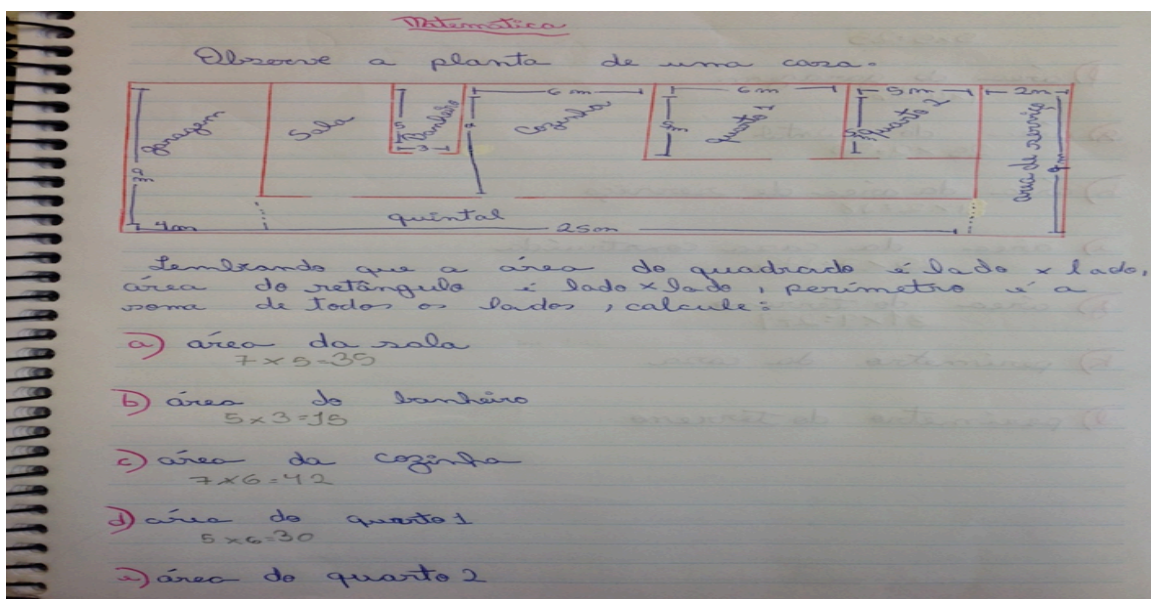 Matemática
Observe a planta de uma casa.
garagem
9 m
4m
sala
5
banheiro
3
7
6 m
cozinha
5 m
6 m
quarto 1
5 m
5
quarto 2
2m
área de serviço
9 m
quintal
25m
Lembrando que a área do quadrado é lado x lado,
área do retângulo é lado x lado, perímetro é a
soma de todos os lados, calcule:
a) área da sala
7 x 5 = 35
b) área do banheiro
5 x 3 = 15
c) área da cozinha
7 x 6 = 42
d) área do quarto 1
5 x 6 = 30
e) área do quarto 2